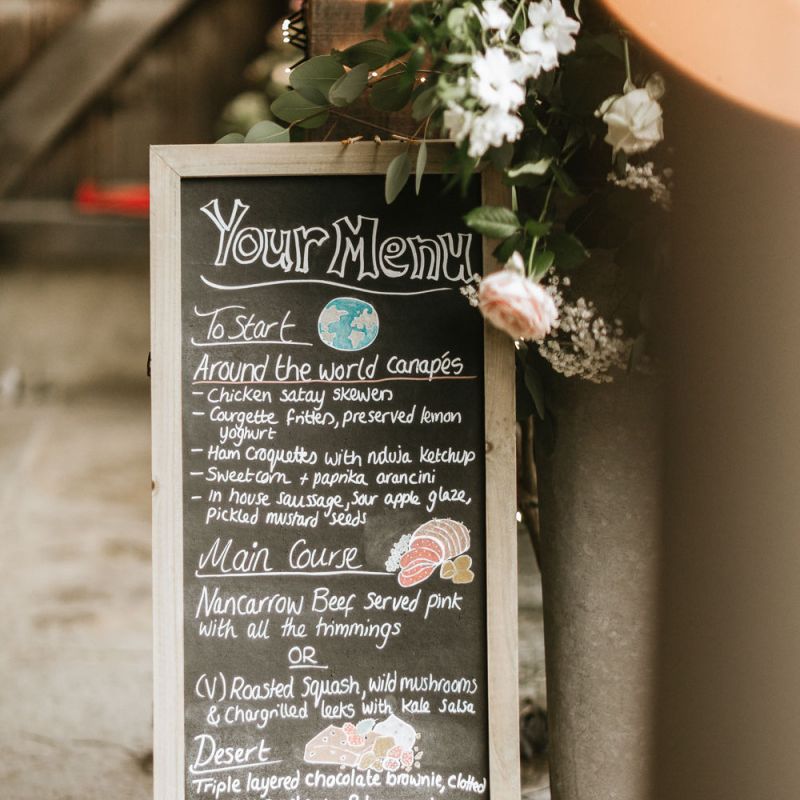 Your Menu
To Start
Around the world canapés
- Chicken satay skewers
- Courgette fritters, preserved lemon
yoghurt
- Ham Croquettes with nduja ketchup
- Sweetcorn + paprika arancini
- In house saussage, sour apple glaze,
pickled mustard seeds
Main Course
Nancarrow Beef served pink
with all the trimmings
OR
(V) Roasted Squash, wild mushrooms
& Chargrilled leeks with kale salsa
Desert
Triple layered chocolate brownie, clotted